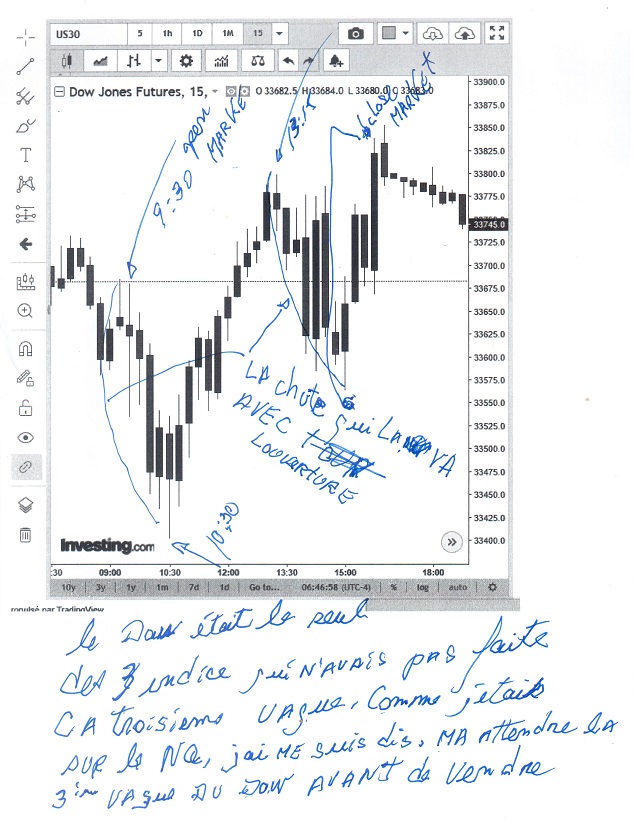 US30
5 1h 1D 1M 15
Dow Jones Futures, 15, O 33682.5 H 33684.0 L 33680.0 C 33683.0
33900.0
33875.0
33850.0
33825.0
33800.0
33775.0
33745.0
33725.0
33700.0
33675.0
33650.0
33625.0
33600.0
33575.0
33550.0
33525.0
33500.0
33475.0
33450.0
33425.0
33400.0
9:30 open
MARKET
13:15
close
MARKET
LA chute qui LA VA
AVEC
LOUVERTURE
10:30
Investing.com
:30 09:00 10:30 12:00 13:30 15:00 18:00
10y 3y 1y 1m 7d 1d Go to... 06:46:58 (UTC-4) % log auto
propulsé par TradingView
le Dow était le seul
des 3 indice qui N'AVAIS PAS faite
CA troisieme VAgue. Comme jetais
SUR le NQ, jai ME suis dis, MA Attendre LA
3ièm VAgue DU DOW AVANT de Vendre